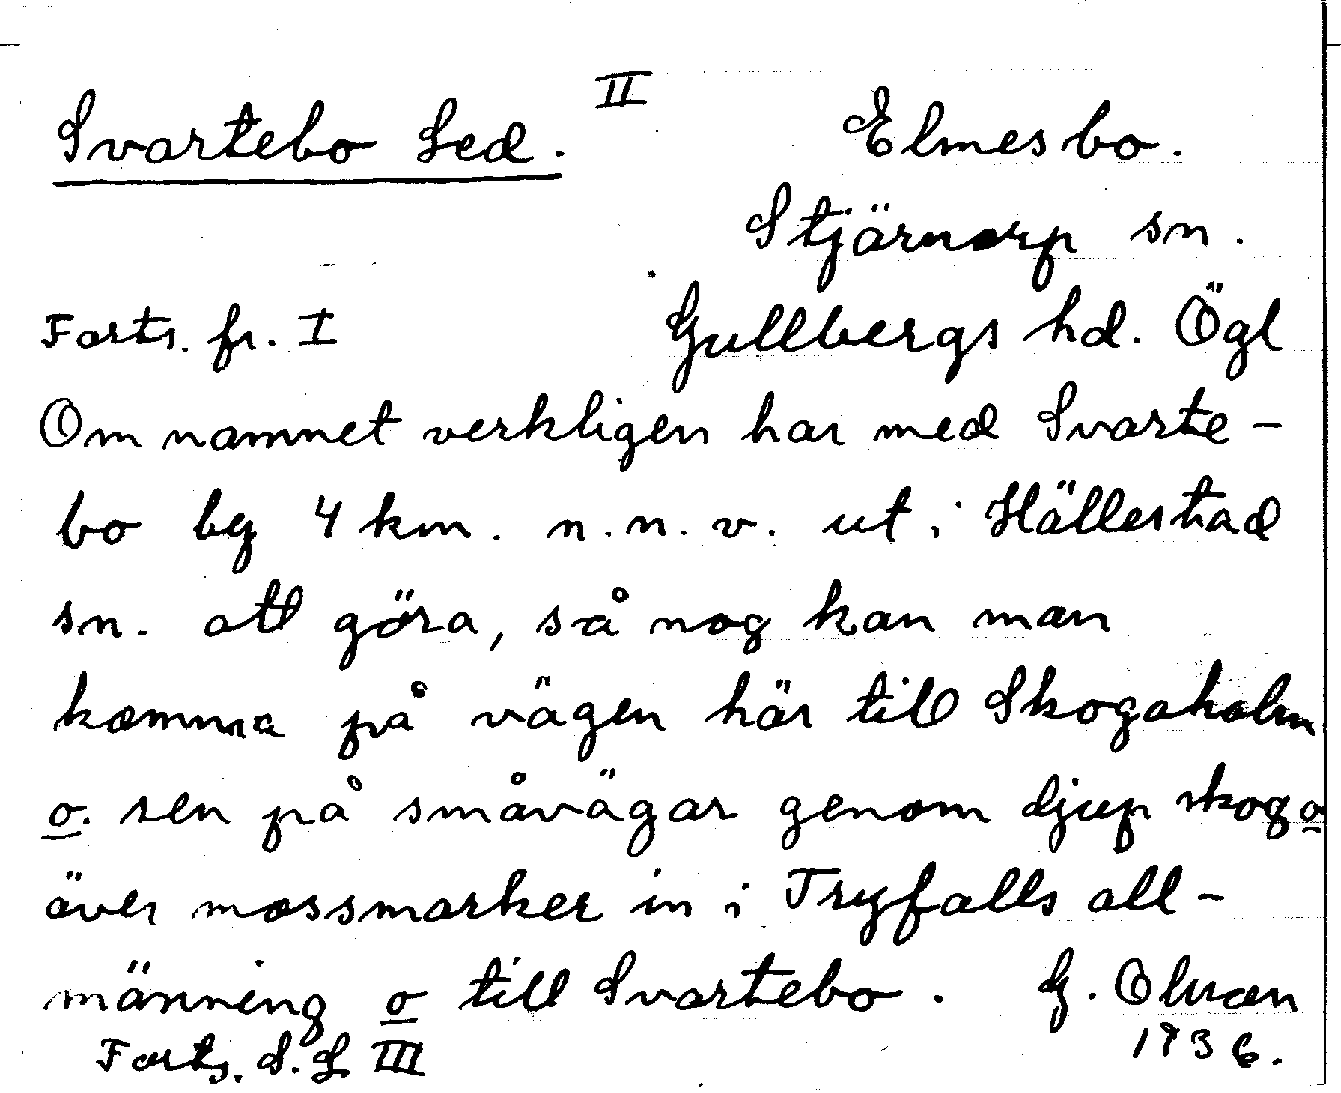 Svartebo Led. II Elmesbo.
Stjärnorp sn.
Forts. fr. I Gullbergs hd. Ögl
Om namnet verkligen har med Svarte-
bo by 4 km. n.n.v. ut i Hällestad
sn. att göra, så nog kan man
komma på vägen här till Skogaholm
o. sen på småvägar genom djup skog o
över mossmarker in i Tryfalls all-
männing o till Svartebo. G. Olson
Forts. S.L III 1936.